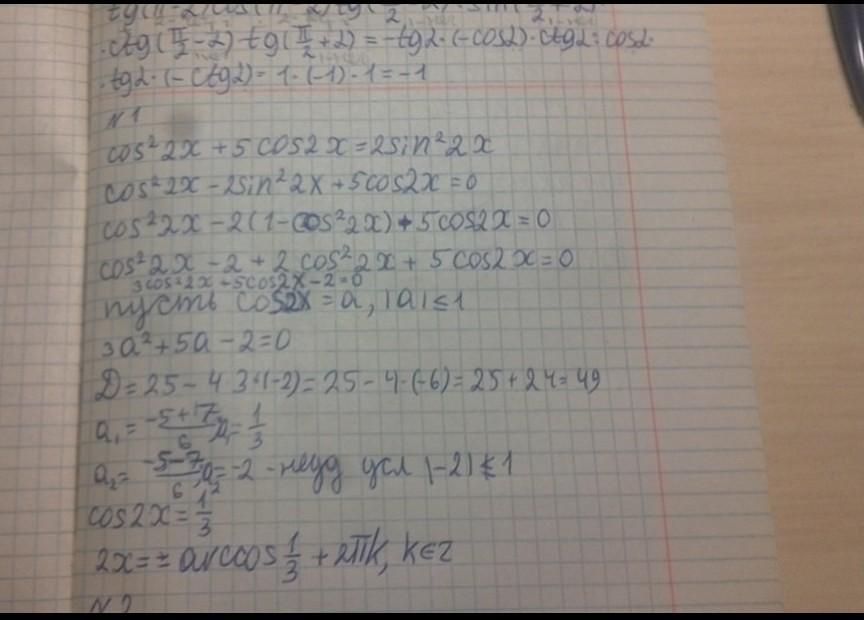 ·ctg(π/2-2)·tg(π/2+2) = -tg2·(-cos2)·ctg2·cos2·
·tg2·(-ctg2) = 1·(-1)·1 = -1
N1
cos²2x + 5cos2x = 2sin²2x
cos²2x - 2sin²2x + 5cos2x = 0
cos²2x - 2(1-cos²2x) + 5cos2x = 0
cos²2x - 2 + 2cos²2x + 5cos2x = 0
3cos²2x + 5cos2x - 2 = 0
пусть cos2x = a, |a| ≤ 1
3a² + 5a - 2 = 0
D = 25 - 4·3·(-2) = 25 - 4·(-6) = 25 + 24 = 49
a₁ = (-5+7)/6, a₁ = 1/3
a₂ = (-5-7)/6, a₂ = -2 - неуд усл |-2| ≰ 1
cos2x = 1/3
2x = ± arccos 1/3 + 2πk, k∈z
N2